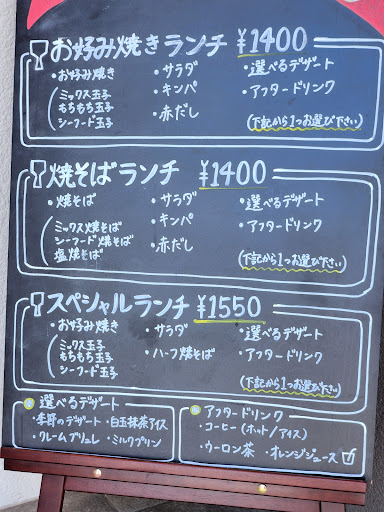 お好み焼きランチ ¥1400
・お好み焼き ・サラダ ・選べるデザート
(ミックス玉子 ・キンパ ・アフタードリンク
もちもち玉子
シーフード玉子 ・赤だし (下記から1つお選び下さい)
焼そばランチ ¥1400
・焼そば ・サラダ ・選べるデザート
(ミックス焼そば ・キンパ ・アフタードリンク
シーフード焼そば ・赤だし
塩焼そば (下記から1つお選び下さい)
スペシャルランチ ¥1550
・お好み焼き ・サラダ ・選べるデザート
(ミックス玉子
もちもち玉子 ・ハーフ焼そば ・アフタードリンク
シーフード玉子
(下記から1つお選び下さい)
選べるデザート
・季節のデザート ・白玉抹茶アイス
・クレームブリュレ ・ミルクプリン
アフタードリンク
・コーヒー(ホット/アイス)
・ウーロン茶 ・オレンジジュース